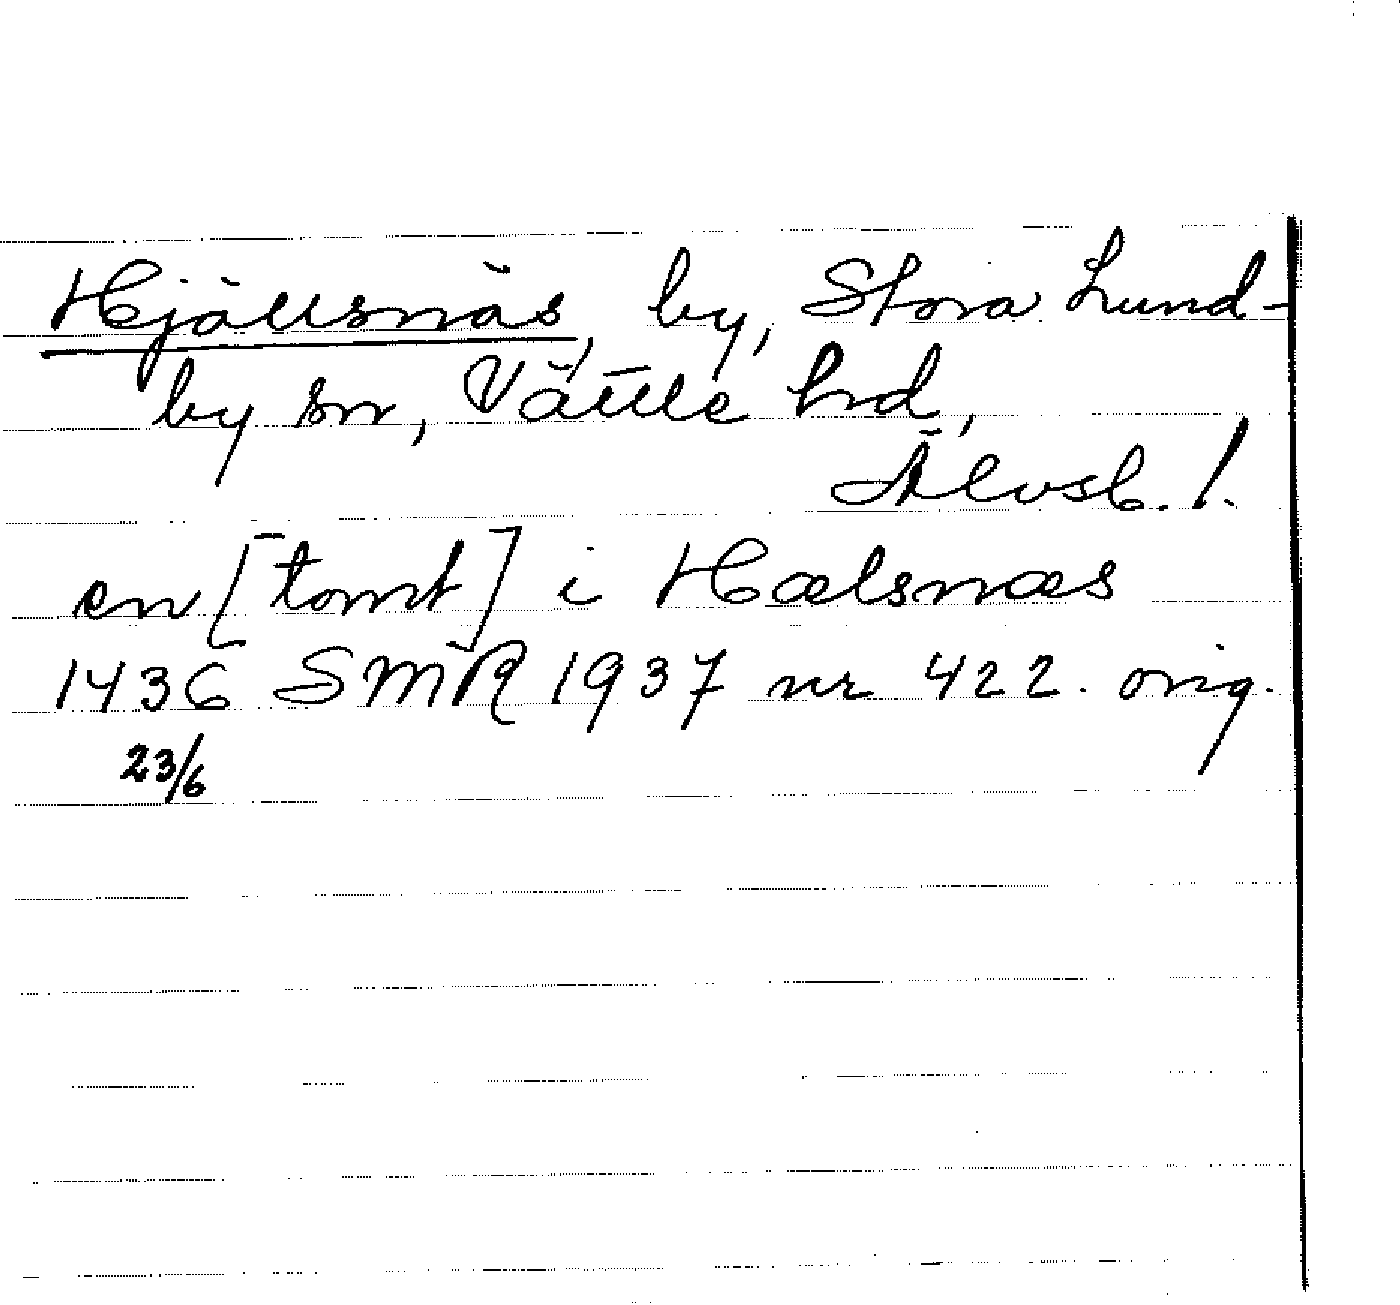 Hjällsnäs, by, Stora Lund-
by sn, Vättle hd,
Älvsb. l.
en [tomt] i Hælsnæs
1436 SMR 1937 nr 422. orig.
23/6